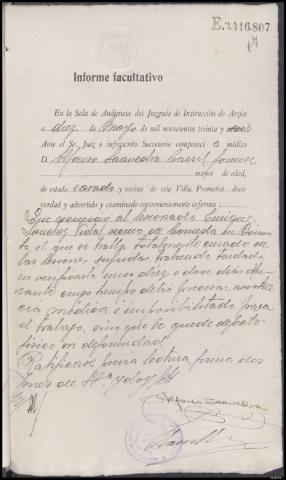 E.3416.807
Informe facultativo
En la Sala de Audiencia del Juzgado de Instrucción de Arzúa
a diez de Mayo de mil novecientos treinta y seis
Ante el Sr. Juez e infrascrito Secretario compareció el médico
D. Alfonso Saavedra forense
mayor de edad,
de estado casado y vecino de esta Villa. Prometió decir
verdad y advertido y examinado convenientemente informa:
Que reconoció al lesionado Enrique
Sanchez Vidal vecino de en
to, el que se halla totalmente curado de
las lesiones sufridas, habiendo tardado
en verificarlo unos diez o doce dias du-
rante cuyo tiempo debió precisar asisten-
cia médica e imposibilitado para
el trabajo, sin que le quede defecto
físico ni deformidad.
Ratificase previa lectura, firma des-
pues de S.Sª y doy fé
Alfonso Saavedra